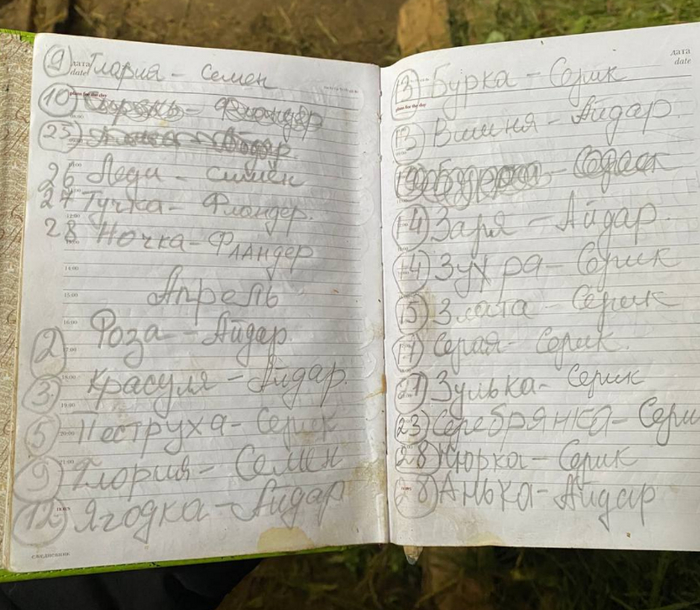 дата
date
9 Глария - Семен
10 - Фландер
23 - Айдар
26 Леди - симен
27 Тучка - Фландер.
28 Ночка - Фландер
Апрель
2 Роза - Айдар
3 Красуля - Айдар.
5 Пеструха - Серик
9 Глория - Семен
12 Ягодка - Айдар
ежедневник
дата
date
13 Бурка - Серик
13 Вишня - Айдар.
14 Заря - Айдар.
14 Зухра - Серик
15 Злата - Серик
17 Серая - Серик.
21 Зулька - Серик
23 Серебрянка - Сери
28 Юрка - Серик
28 Анька - Айдар